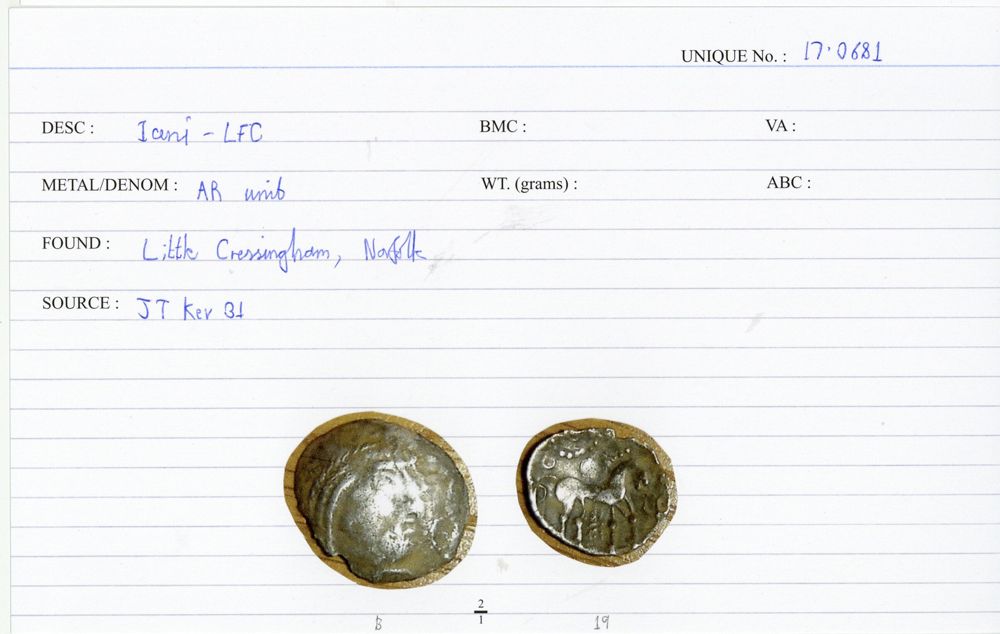 UNIQUE No. : 17·0681
DESC : Iceni - LFC BMC : VA :
METAL/DENOM : AR unit WT. (grams) : ABC :
FOUND : Little Cressingham, Norfolk
SOURCE : JT Kev B1
2
1
B 19